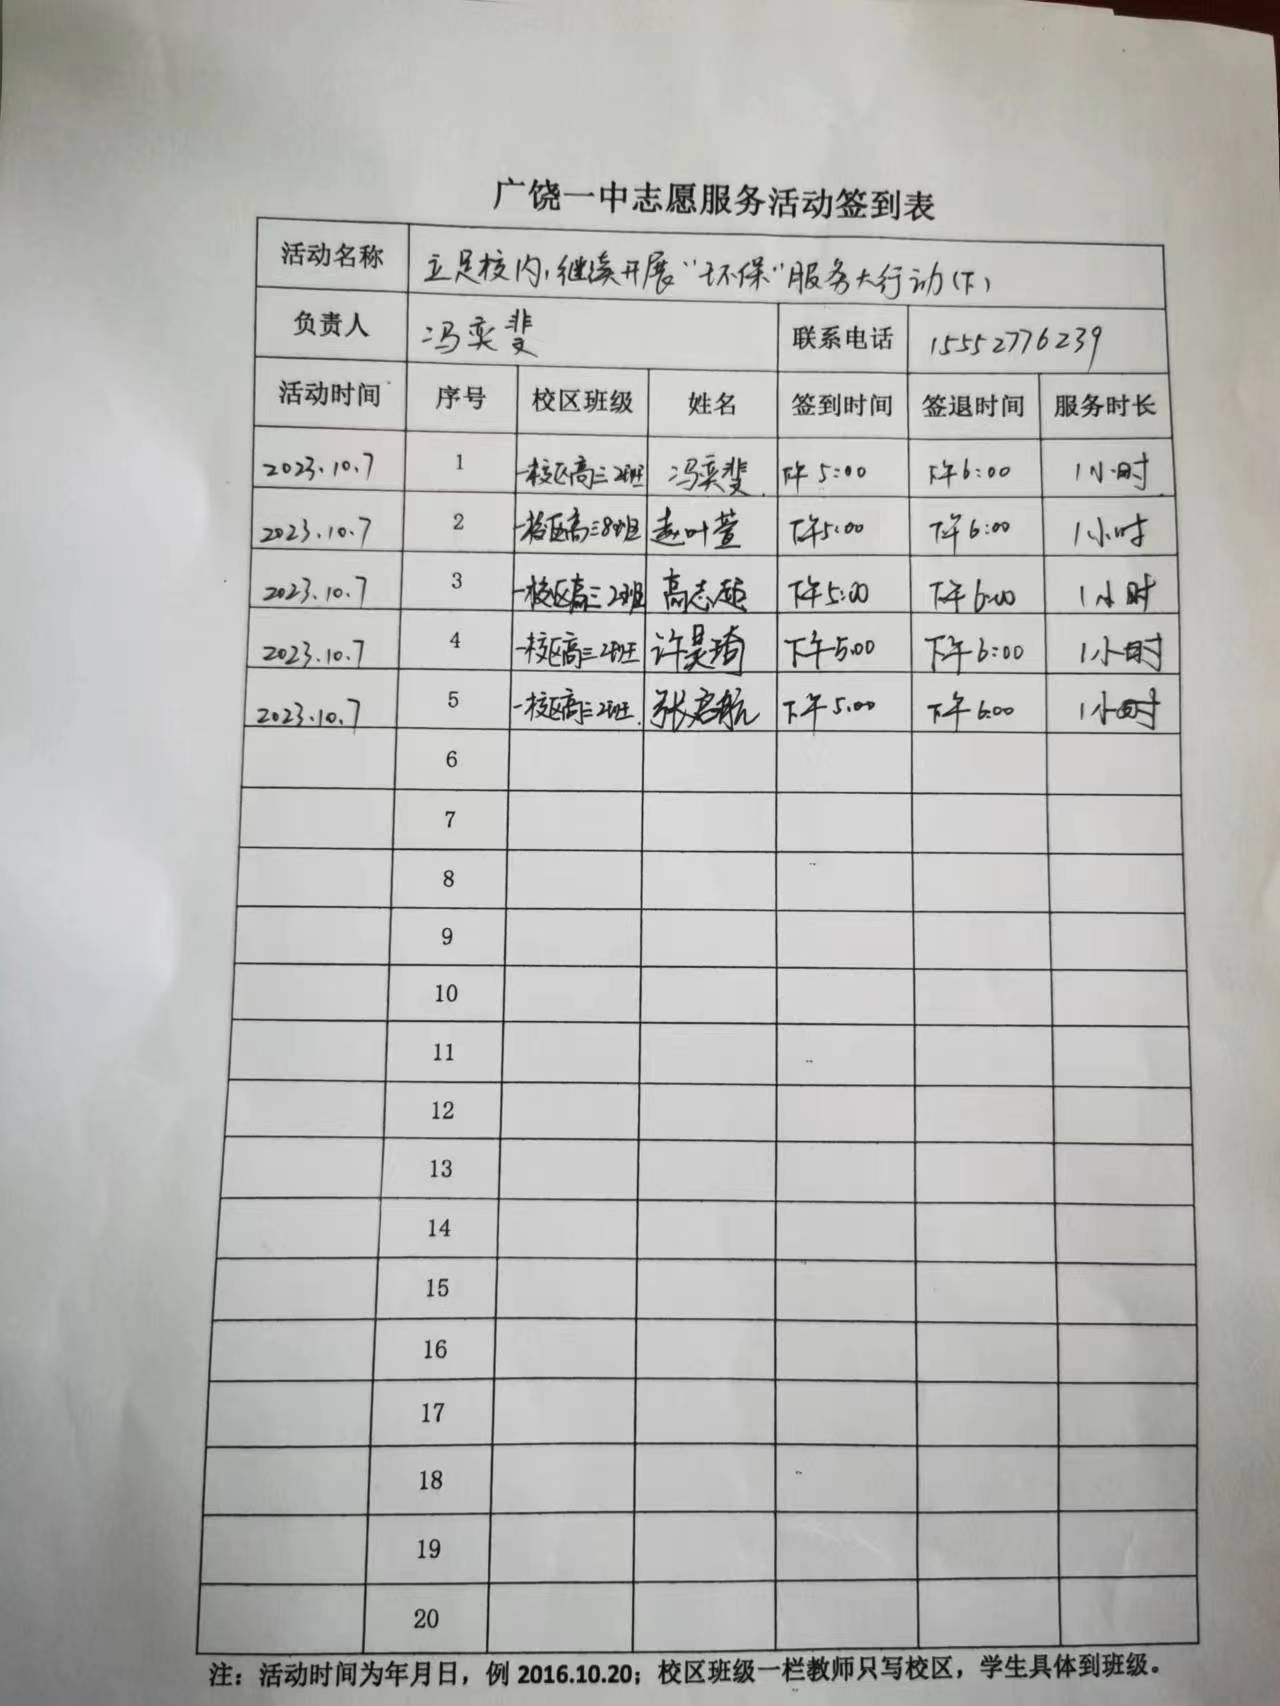 广饶一中志愿服务活动签到表
活动名称 立足校内,继续开展"环保"服务大行动(下)
负责人 冯奕斐 联系电话 15552776239
活动时间 序号 校区班级 姓名 签到时间 签退时间 服务时长
2023.10.7 1 一校区高三2班 冯奕斐 下午5:00 下午6:00 1小时
2023.10.7 2 一校区高三8班 赵叶萱 下午5:00 下午6:00 1小时
2023.10.7 3 一校区高三2班 高志超 下午5:00 下午6:00 1小时
2023.10.7 4 一校区高三2班 许昊琦 下午5:00 下午6:00 1小时
2023.10.7 5 一校区高三2班 张启航 下午5:00 下午6:00 1小时
6
7
8
9
10
11
12
13
14
15
16
17
18
19
20
注：活动时间为年月日，例 2016.10.20；校区班级一栏教师只写校区，学生具体到班级。